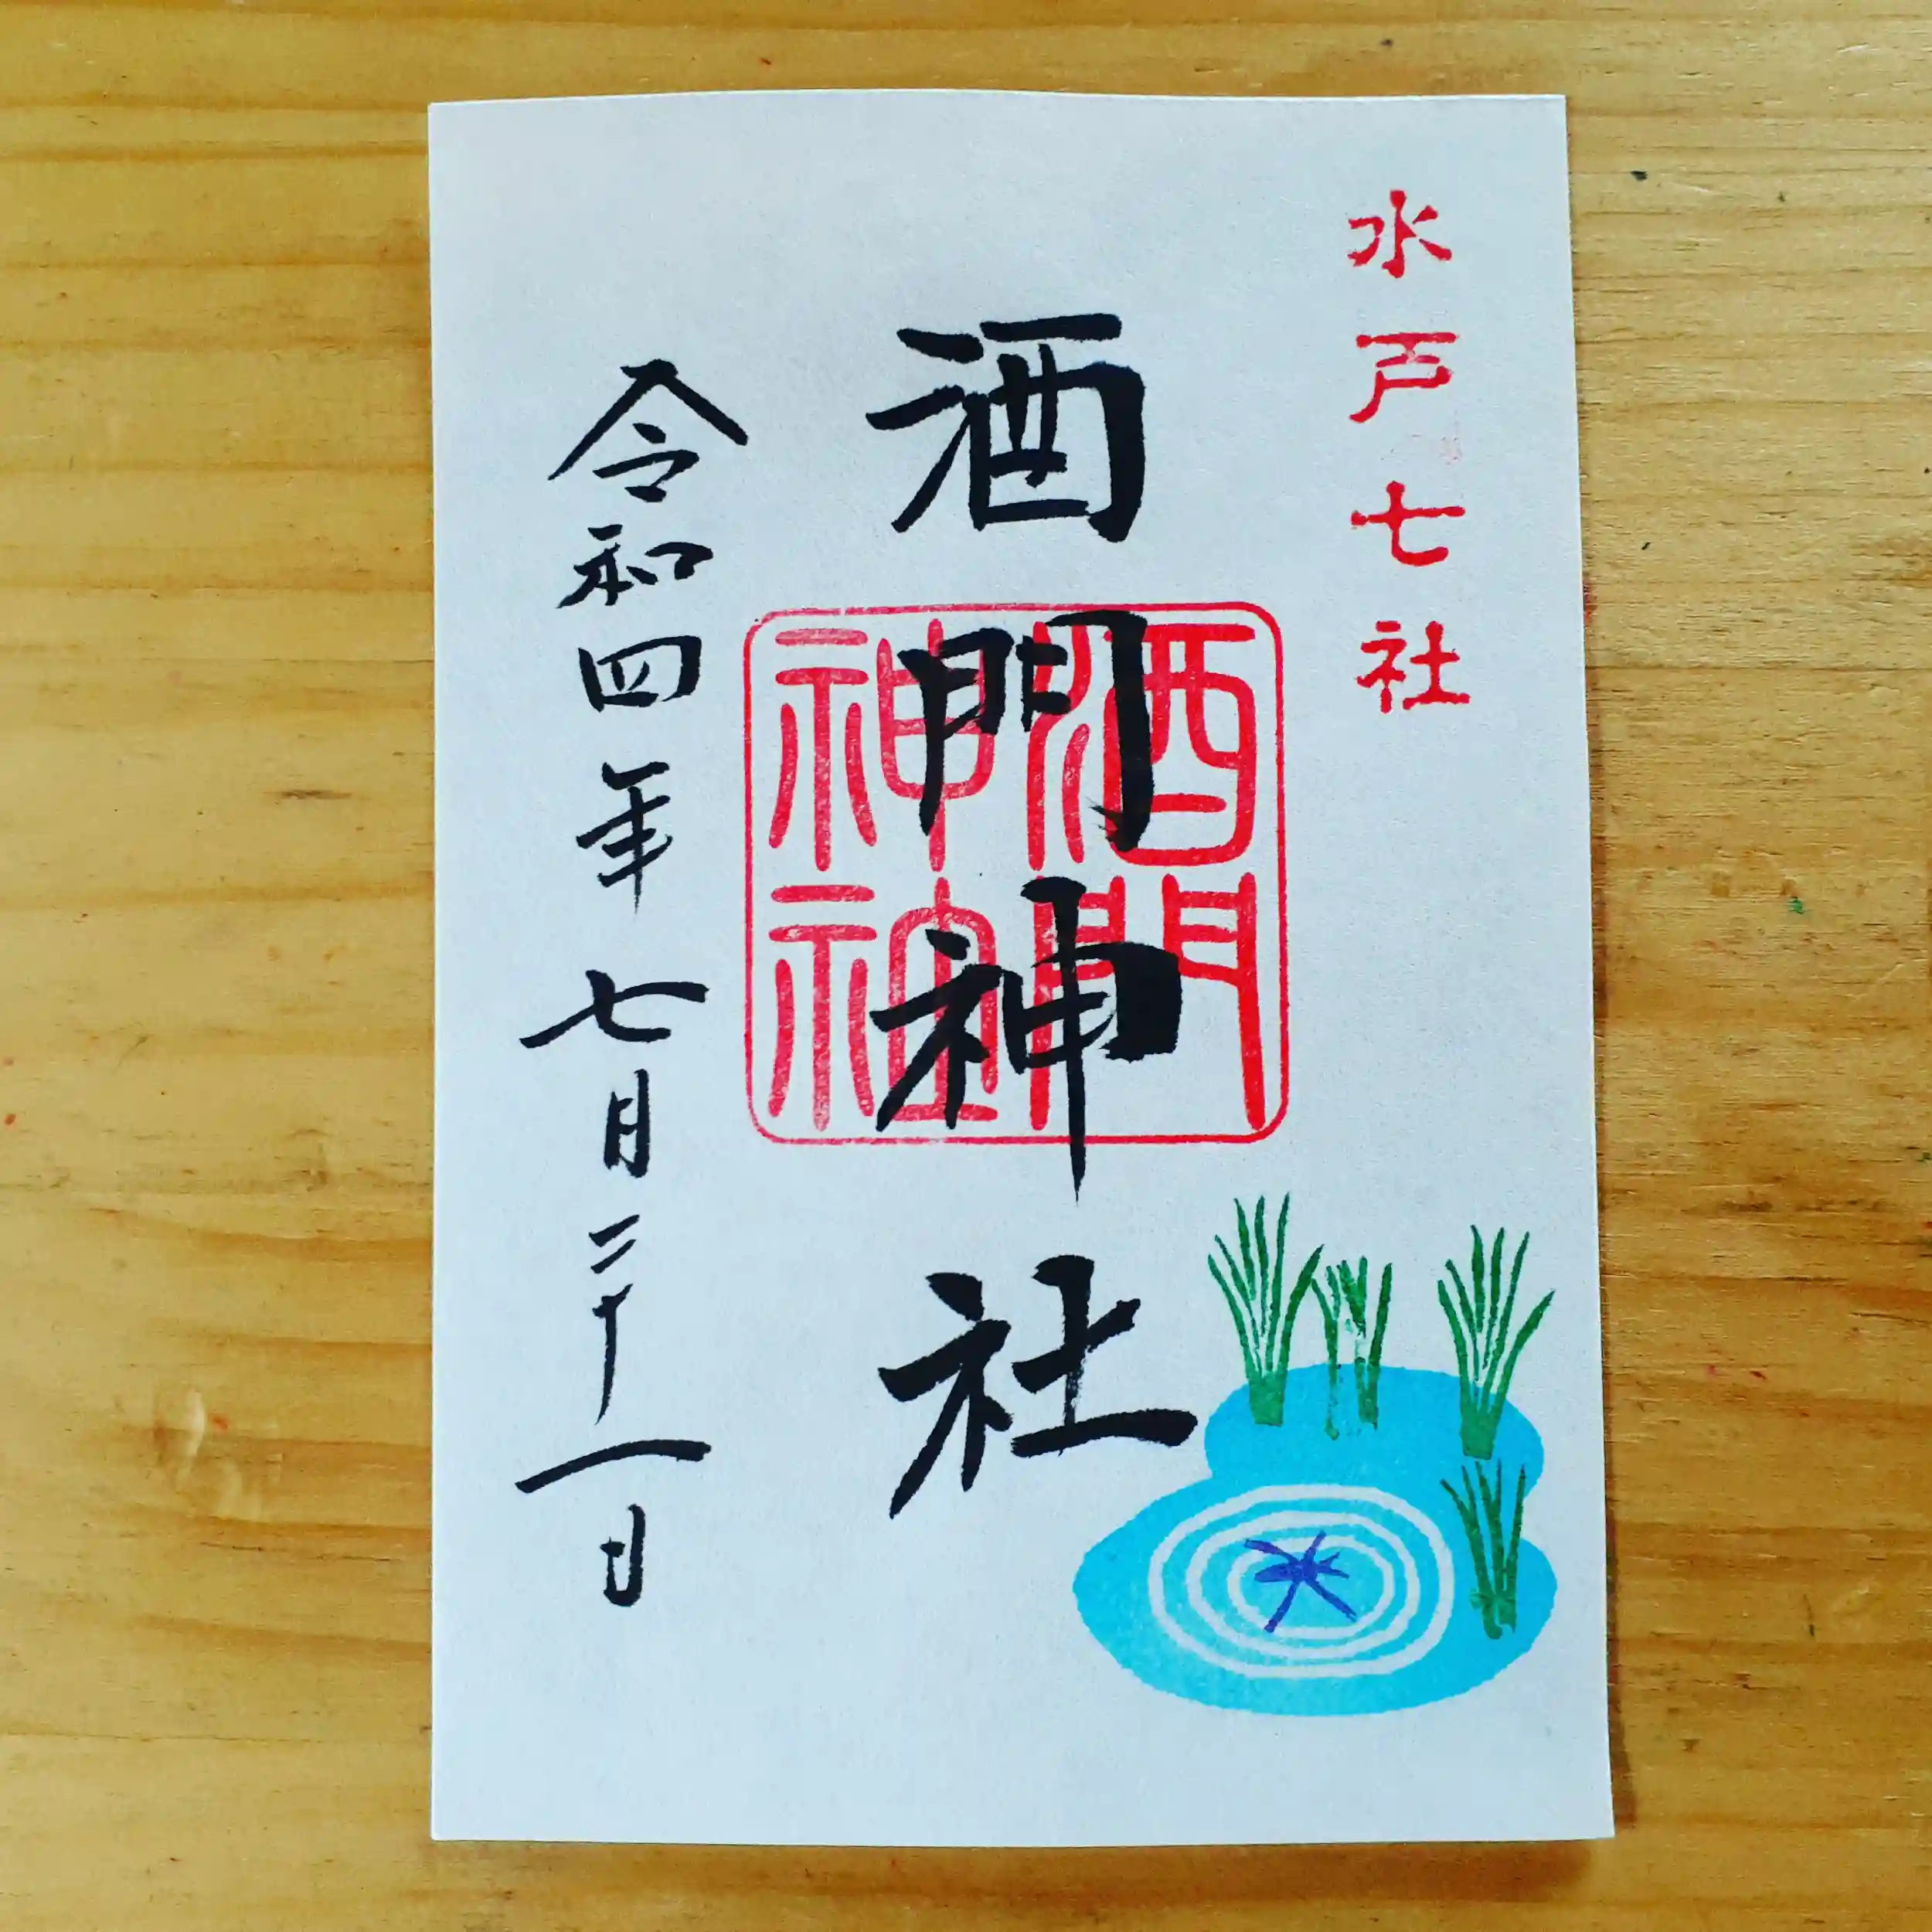 水戸七社
酒門神社
酒門神社
令和四年七月二十一日